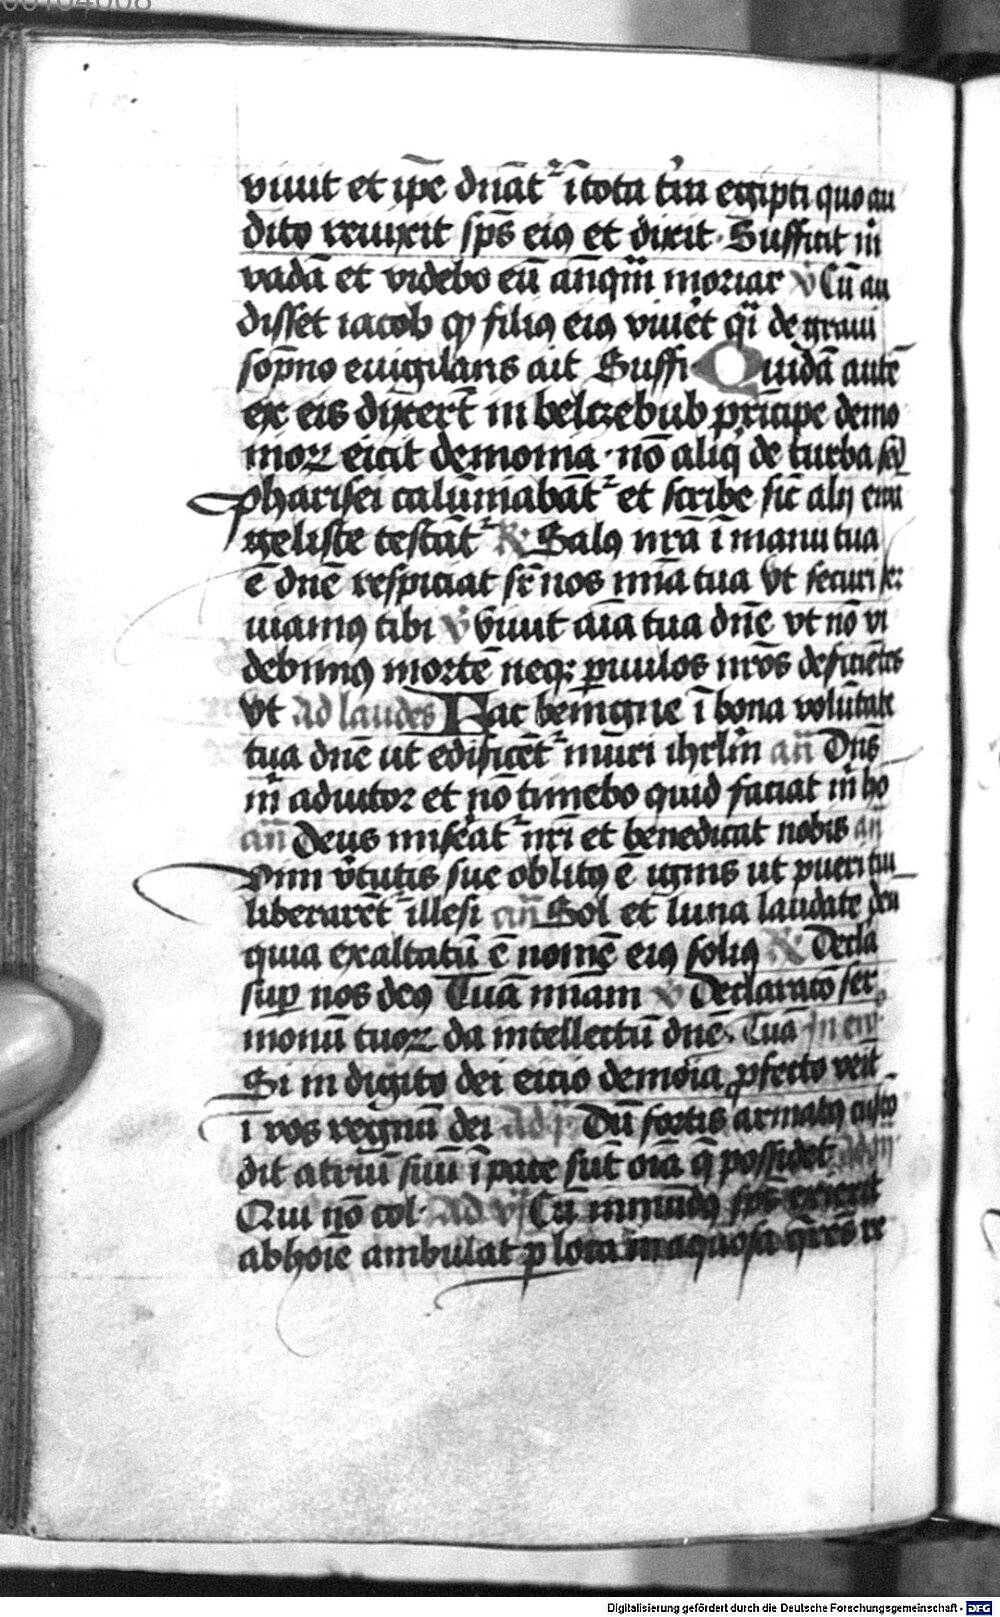 00104008
viuit et ip̄e dn̄at᷑ ī tota t̄ra egipti quo au
dito reuixit sp̄s eiꝯ et dixit · Sufficit m̄
vadā et videbo eū an̄q̄m moriar ꝟ Cū au
disset iacob ꝙ filiꝯ eiꝯ viuet q̄i de graui
sop̄no euigilans ait Suffi Quidā autē
ex eis dixert̄ in belczebub prīcipe demo
nioꝝ eicit demonia · nō aliq̇ de turba sꝫ
pharisei calūniabāt᷑ et scribe sic̄ alij euā
geliste testāt᷑ ℟ Salꝯ nr̄a ī manu tua
ē dn̄e respiciat sr̄ nos mīa tua Vt securi ser
uiamꝯ tibi ꝟ Viuit aīa tua dn̄e vt nō vi
debimꝯ mortē neqꝫ ꝑuulos nr̄os deficiētes
Vt ad laudes Fac benigne ī bona volūtate
tua dn̄e ut edificēt᷑ muri ihrl̄m an̄ Dn̄s
m̄ adiutor et nō timebo quid faciat m̄ ho
an̄ Deus miseāt᷑ nr̄i et benedicat nobis an̄
Vim v̄tutis sue oblitꝯ ē ignis ut pueri tui
liberarēt᷑ illesi an̄ Sol et luna laudate deū
quia exaltatū ē nomē eiꝯ soliꝯ ℟ Decla
suꝑ nos deꝯ Tuā mīam ꝟ Declaratō ser
monū tuoꝝ da intellectū dn̄e. Tuā In ew̄
Si in digito dei eicio demōia ꝓfecto veīt
ī vos regnū dei ad p̄ Dū fortis armatꝯ custo
dit atriū suū ī pace sūt oīa q̄ possidet
Qui nō col · Ad vj Cū inmūdꝯ sp̄s exierit
ab hoīe ambulat ꝑ loca inaquosa q̄res re
Digitalisierung gefördert durch die Deutsche Forschungsgemeinschaft - DFG